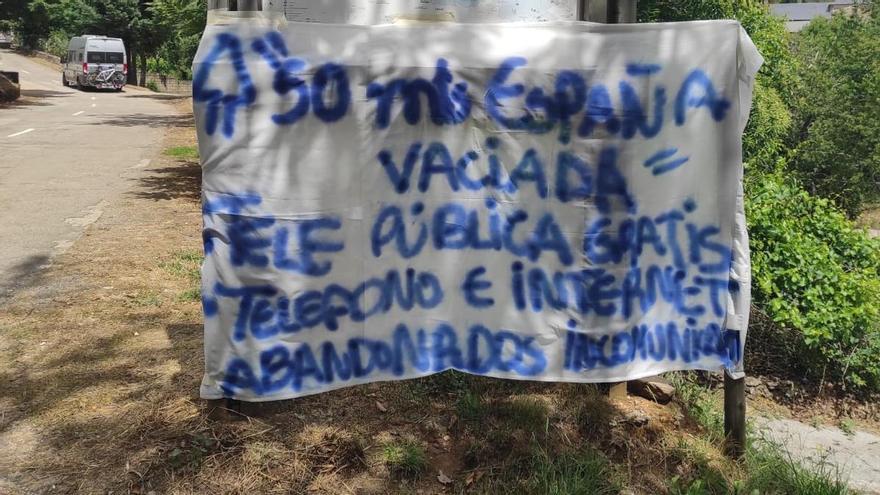 A 50 mts España
vaciada =
Tele pública gratis
Teléfono e internet
Abandonados incomunica